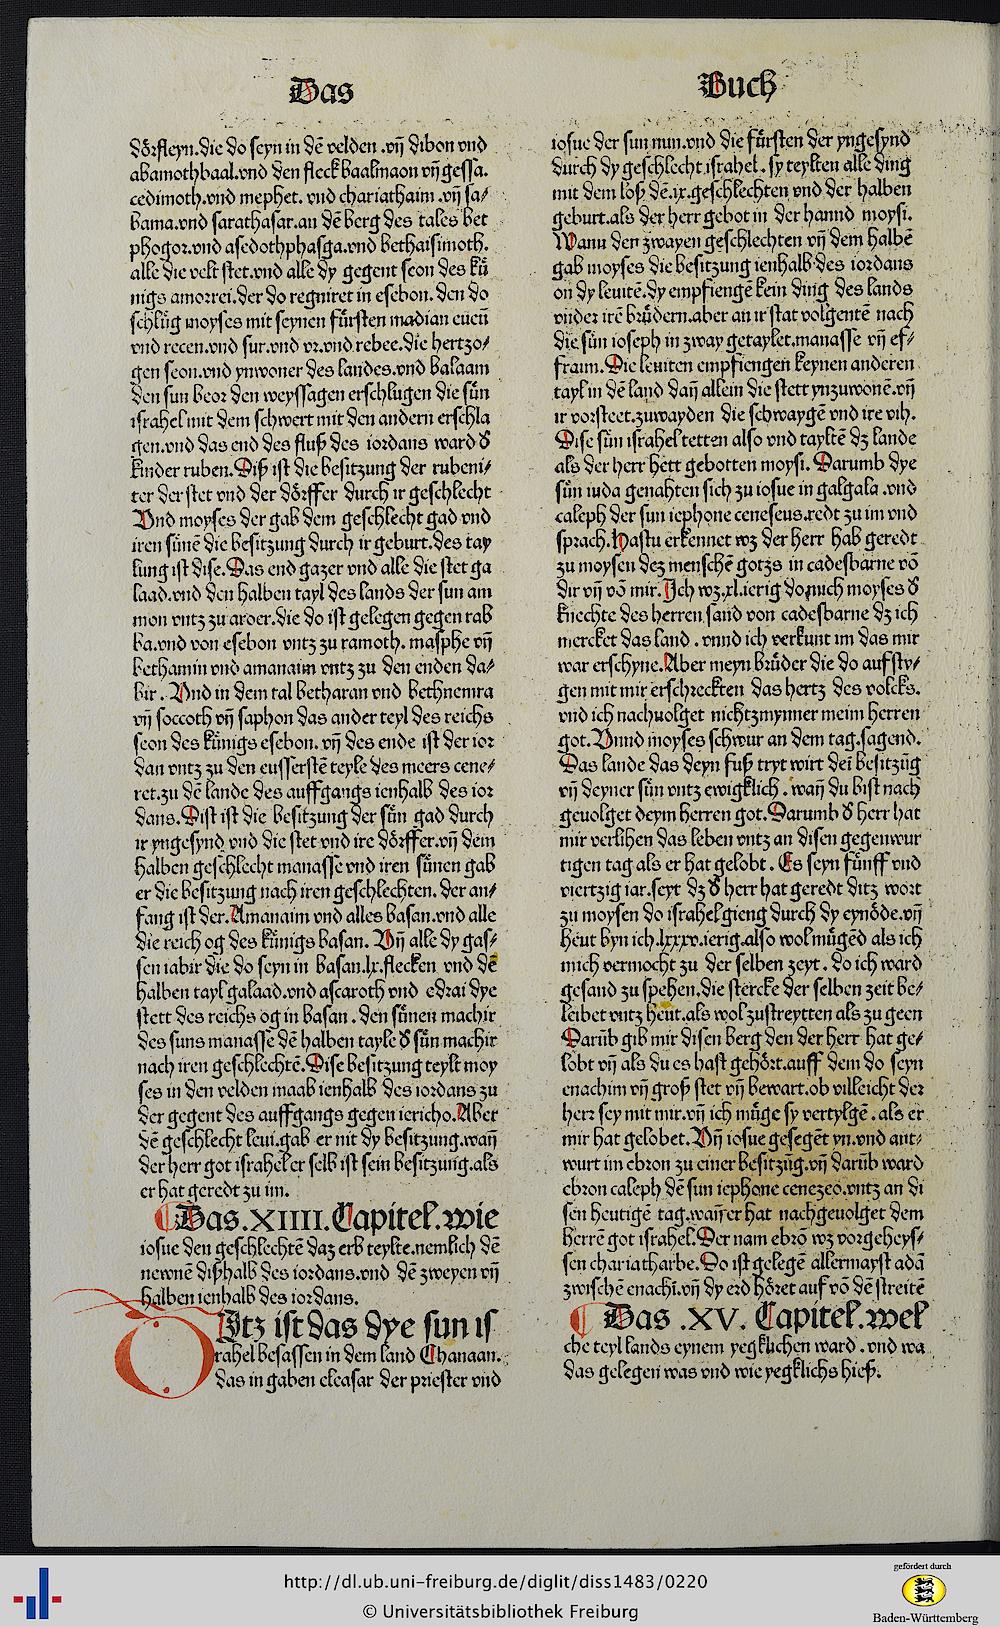 Das
Buch
dörfleyn.die do seyn in dē velden .vn̄ dibon vnd
abamothbaal.vnd den fleck baalmaon vn̄ gessa.
cedimoth.vnd mephet. vnd chariathaim .vn̄ sa/
bama.vnd sarathasar.an dē berg des tales bet
phogor.vnd asedothphasga.vnd bethaisimoth.
alle die velt stet.vnd alle dy gegent seon des kü
nigs amorrei.der do regniret in esebon. den do
schlůg moyses mit seynen fürsten madian eueū
vnd recen.vnd sur.vnd vr.vnd rebee.die hertzo/
gen seon.vnd ynwoner des landes.vnd balaam
den sun beor den weyssagen erschlůgen die sün
israhel mit dem schwert mit den andern erschla
gen.vnd das end des fluß des iordans ward d̾
kinder ruben.Diß ist die besitzung der rubeni/
ter der stet vnd der dörffer durch ir geschlecht
Vnd moyses der gab dem geschlecht gad vnd
iren sünē die besitzung durch ir geburt.des tay
lung ist dise.Das end gazer vnd alle die stet ga
laad.vnd den halben tayl des lands der sun am
mon vntz zu aroer.die do ist gelegen gegen rab
ba.vnd von esebon vntz zu ramoth. masphe vn̄
bethamin vnd amanaim vntz zu den enden da/
bir . Vnd in dem tal betharan vnd bethnemra
vn̄ soccoth vn̄ saphon das ander teyl des reichs
seon des künigs esebon. vn̄ des ende ist der ior
dan vntz zu den eusserstē teyle des meers cene/
ret.zu dē lande des auffgangs ienhalb des ior
dans.Dist ist die besitzung der sün gad durch
ir yngesynd vnd die stet vnd ire dörffer.vn̄ dem
halben geschlecht manasse vnd iren sünen gab
er die besitzung nach iren geschlechten. der an/
fang ist der.Amanaim vnd alles basan.vnd alle
die reich og des künigs basan. Vn̄ alle dy gas/
sen iabir die do seyn in basan.lx.flecken vnd dē
halben tayl galaad.vnd ascaroth vnd edrai dye
stett des reichs og in basan . den sünen machir
des suns manasse dē halben tayle d̾ sün machir
nach iren geschlechtē.Dise besitzung teylt moy
ses in den velden maab ienhalb des iordans zu
der gegent des auffgangs gegen iericho.Aber
dē geschlecht leui.gab er nit dy besitzung.wan̄
der herr got israhel er selb ist sein besitzung.als
er hat geredt zu im.
Das.XIIII.Capitel.wie
iosue den geschlechtē daz erb teylte.nemlich dē
newnē dißhalb des iordans.vnd dē zweyen vn̄
halben ienhalb des iordans.
DItz ist das dye sun is
rahel besassen in dem land Chanaan.
das in gaben eleasar der priester vnd
iosue der sun nun.vnd die fürsten der yngesynd
durch dy geschlecht israhel . sy teylten alle ding
mit dem löß dē.ix.geschlechten vnd der halben
geburt.als der herr gebot in der hannd moysi.
Wann den zwayen geschlechten vn̄ dem halbē
gab moyses die besitzung ienhalb des iordans
on dy leuitē.dy empfiengē kein ding des lands
vnder irē brüdern.aber an ir stat volgentē nach
die sün ioseph in zway getaylet.manasse vn̄ ef/
fraim.Die leuiten empfiengen keynen anderen
tayl in dē land dan̄ allein die stett ynzuwonē.vn̄
ir vorsteet.zuwayden die schwaygē vnd ire vih.
Dise sün israhel tetten also vnd tayltē dz lande
als der herr hett gebotten moysi. Darumb dye
sün iuda genahten sich zu iosue in galgala .vnd
caleph der sun iephone ceneseus.redt zu im vnd
sprach.Hastu erkennet wz der herr hab geredt
zu moysen dez menschē gotzs in cadesbarne vō
dir vn̄ vō mir.Ich wz.xl.ierig do mich moyses d̾
knechte des herren sand von cadesbarne dz ich
mercket das land . vnnd ich verkunt im das mir
war erschyne.Aber meyn brüder die do aufsty/
gen mit mir erschreckten das hertz des volcks.
vnd ich nachuolget nichtzmynner meim herren
got.Vnnd moyses schwur an dem tag.sagend.
Das lande das deyn fuß tryt wirt deī besitzūg
vn̄ deyner sün vntz ewigklich . wan̄ du bist nach
geuolget deym herren got.Darumb d̾ herr hat
mir verlihen das leben vntz an disen gegenwur
tigen tag als er hat gelobt . Es seyn fünff vnd
viertzig iar.seyt dz d̾ herr hat geredt ditz wort
zu moysen do israhel gieng durch dy eynöde.vn̄
heut byn ich.lxxxv.ierig.also wol mügēd als ich
mich vermocht zu der selben zeyt . do ich ward
gesand zu spehen.die stercke der selben zeit be/
leibet vntz heut.als wol zustreytten als zu geen
Darūb gib mir disen berg den der herr hat ge/
lobt vn̄ als du es hast gehört.auff dem do seyn
enachim vn̄ groß stet vn̄ bewart.ob villeicht der
herr sey mit mir.vn̄ ich müge sy vertylgē . als er
mir hat gelobet.Vn̄ iosue gesegēt yn.vnd ant/
wurt im ebron zu einer besitzūg.vn̄ darūb ward
ebron caleph dē sun iephone cenezeo.vntz an di
sen heutigē tag.wan̄ er hat nachgeuolget dem
herrē got israhel.Der nam ebrō wz vorgeheys/
sen chariatharbe.Do ist gelegē allermayst adā
zwischē enachī.vn̄ dy erd höret auf vō dē streitē
Das .XV. Capitel.wel
che teyl lands eynem yegklichen ward . vnd wa
das gelegen was vnd wie yegklichs hieß.
http://dl.ub.uni-freiburg.de/diglit/diss1483/0220
© Universitätsbibliothek Freiburg
gefördert durch
Baden-Württemberg